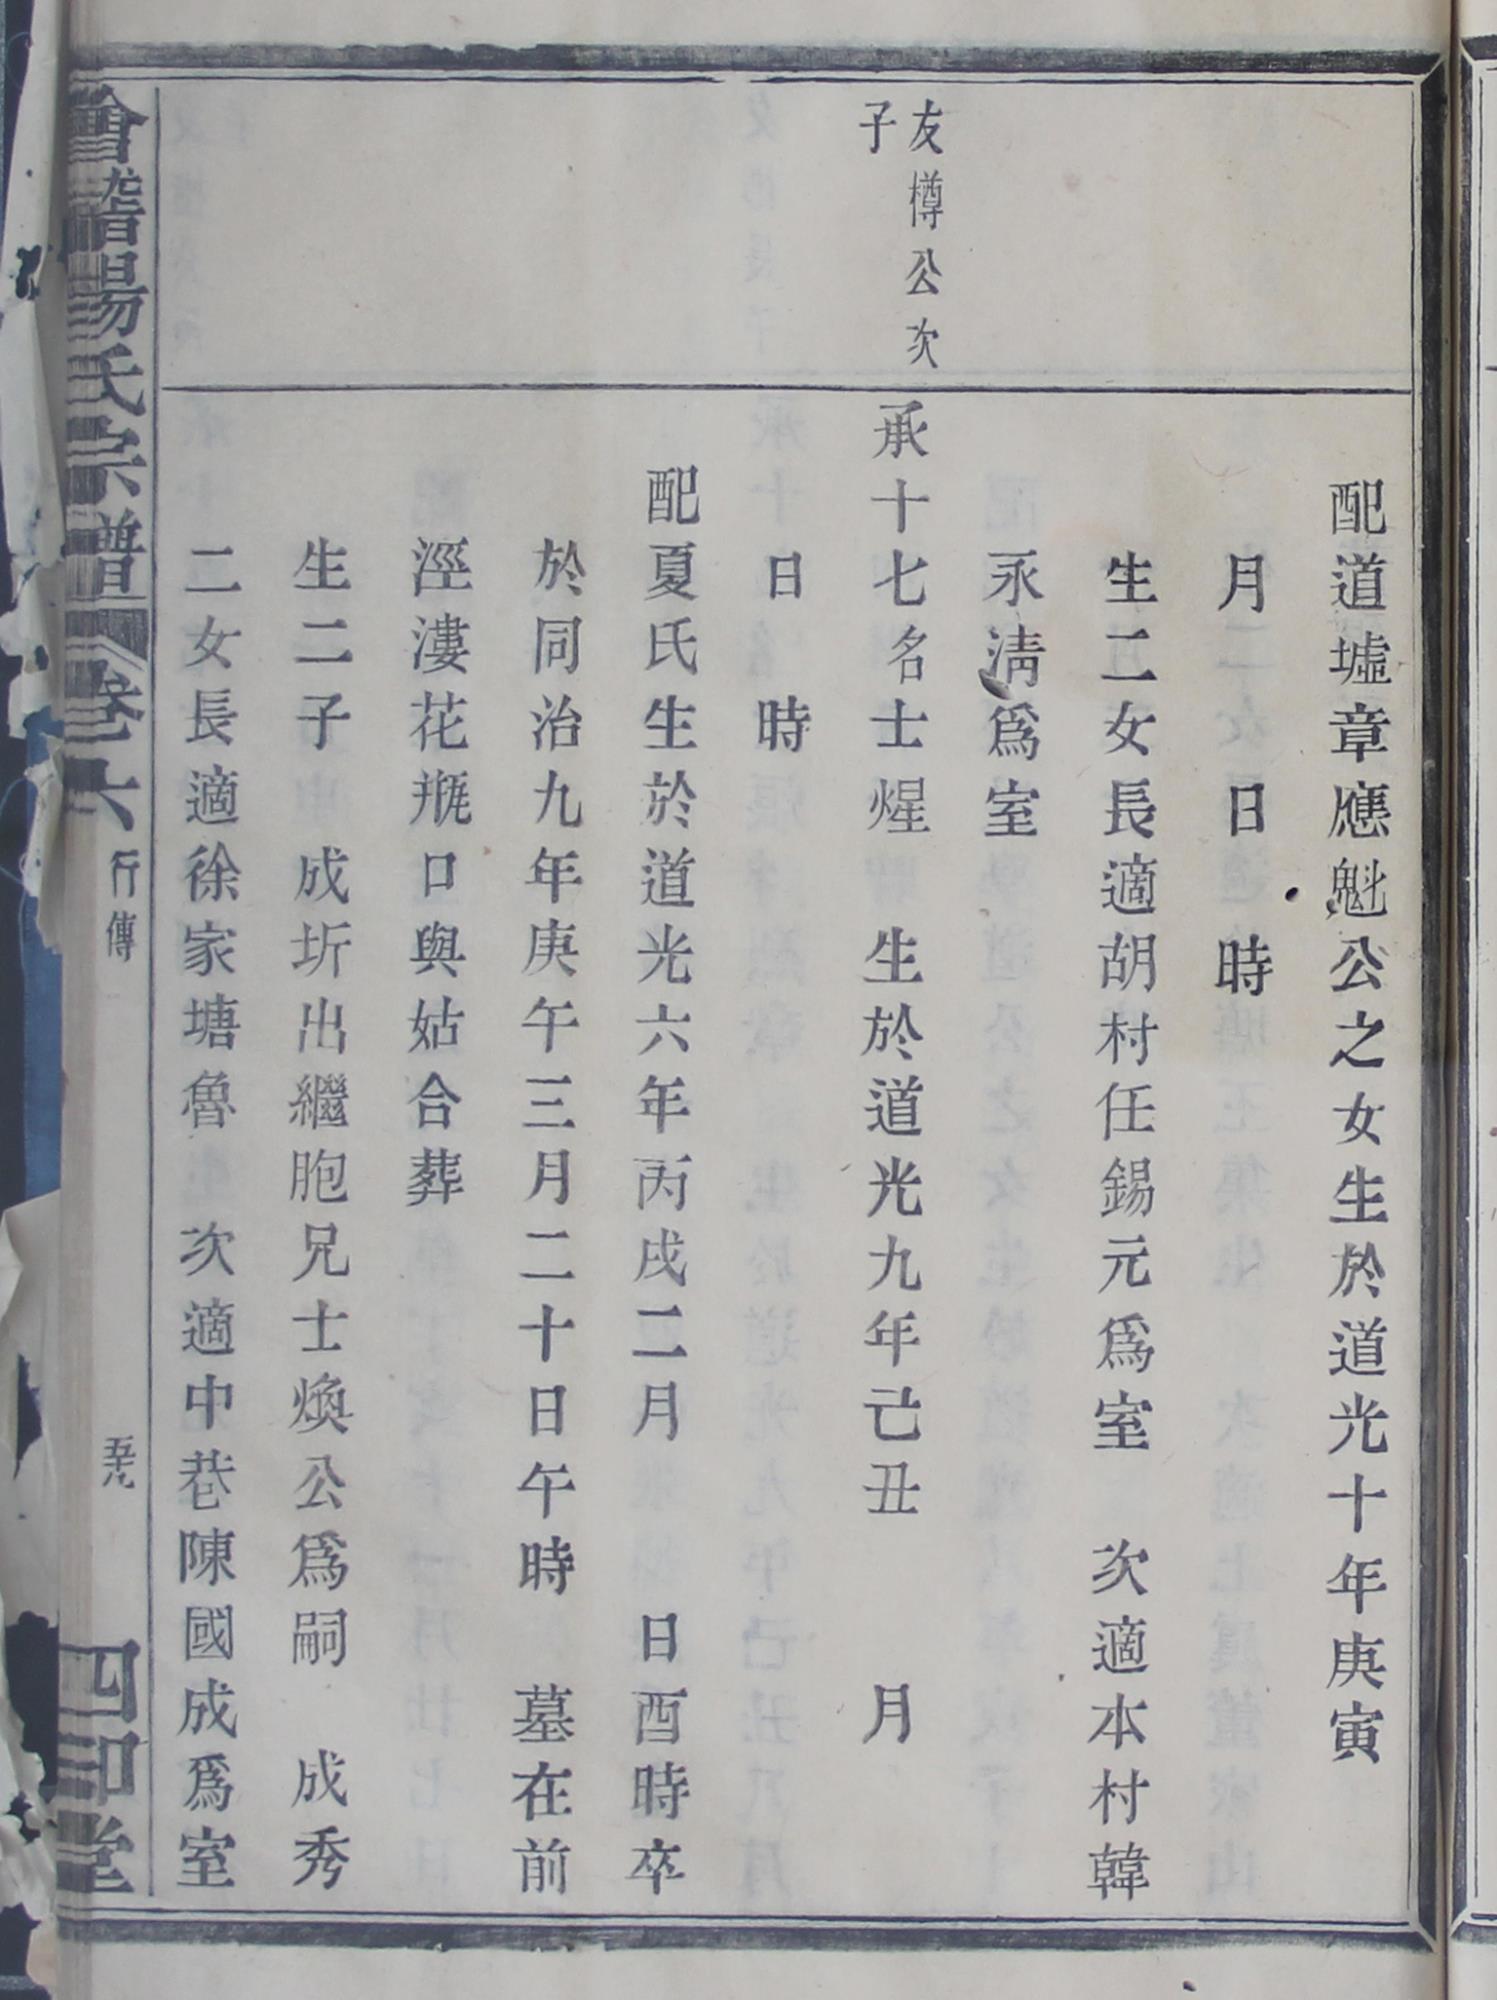 配道墟章應魁公之女生於道光十年庚寅
月 日 時
生二女長適胡村任錫元爲室 次適本村韓
永淸爲室
友樽公次
子
承十七名士煋 生於道光九年己丑 月
日 時
配夏氏生於道光六年丙戌二月 日酉時卒
於同治九年庚午三月二十日午時 墓在前
涇漊花瓶口與姑合葬
生二子 成圻出繼胞兄士煥公爲嗣 成秀
二女長適徐家塘魯 次適中巷陳國成爲室
會稽楊氏宗譜 卷六 行傳 四印堂